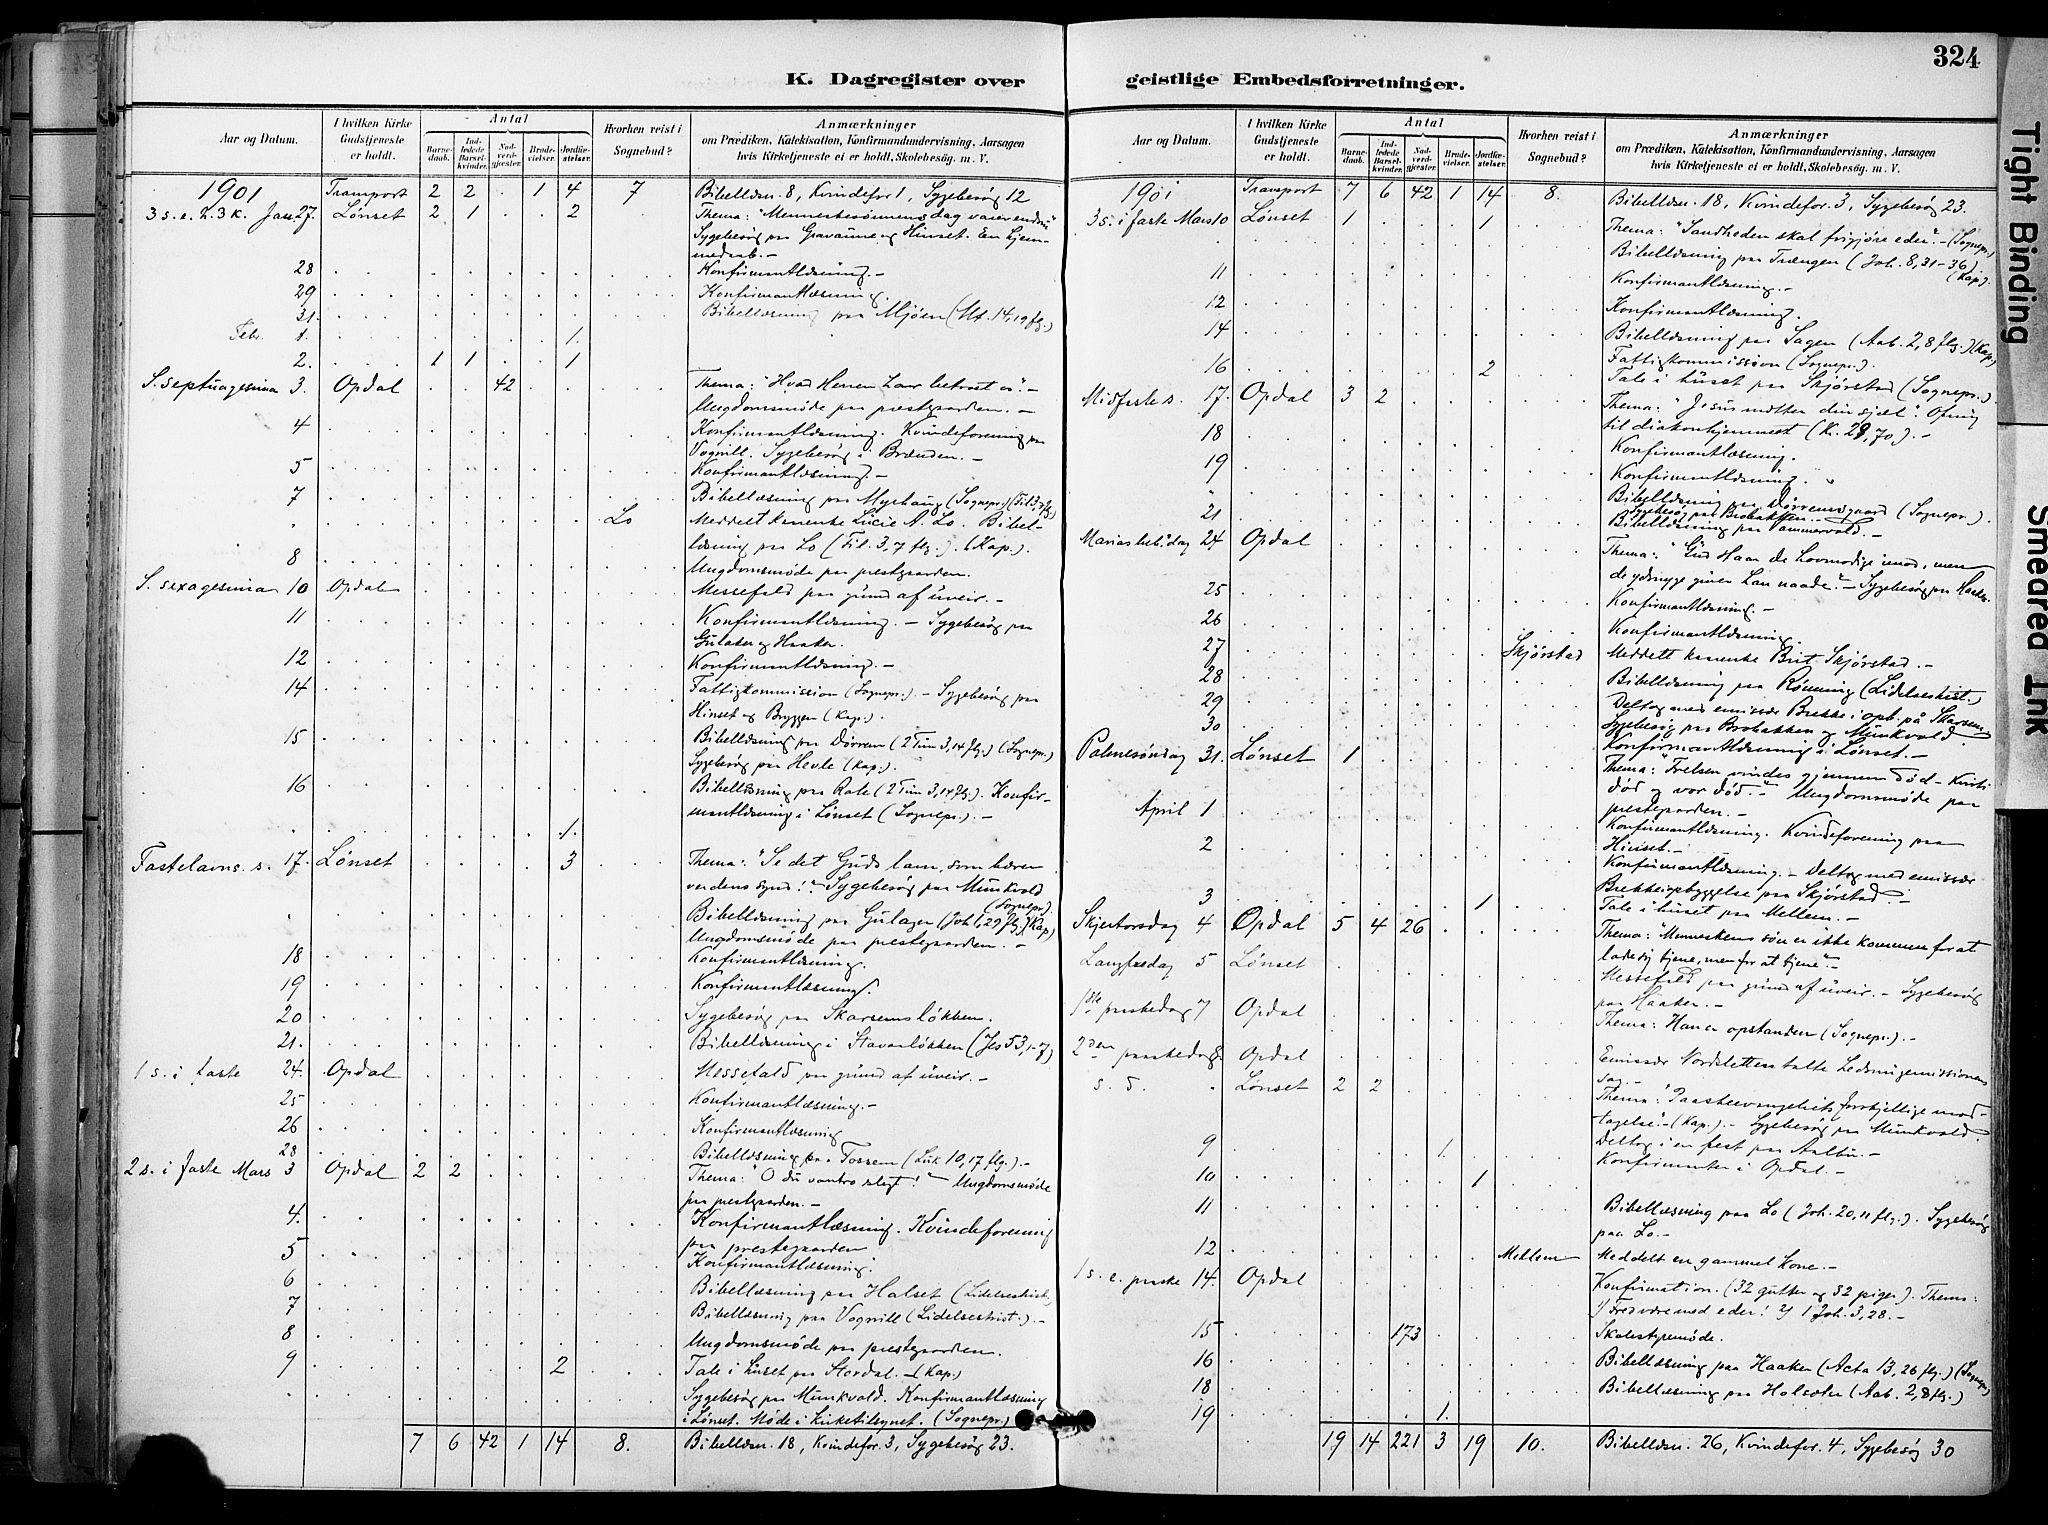 324
K. Dagregister over
Aar og Datum.
I hvilken Kirke Gudstjeneste er holdt.
Antal
Barnedaab.
Indledede Barselkvinder.
Nadverdgjester.
Brudevielser.
Jordfæstelser.
Hvorhen reist i Sognebud?
Anmærkninger
om Prædiken, Katekisation, Konfirmandundervisning, Aarsagen
hvis Kirketjeneste ei er holdt, Skolebesøg. m. V.
1901 Transport 2 2 . 1 4 7 Bibellæsn. 8, Kvindefor 1, Sygebesøg 12
3 s. e. h. 3 k. Jan. 27. Lønset 2 1 . . 2 Thema: "Menneskesønnens dag
Sygebesøg paa Gravaune og Hinset. En hjem-
medaab. -
28 Konfirmantlæsning. -
29 Konfirmantlæsning
31. Bibellæsning paa Mjøen (Mt. 14, 19 flg.)
Febr. 1. 1.
2. 1 1 . . 1
S. septuagesima 3. Opdal . . 42 Thema: "Hvad Herren har betroet os". -
Ungdomsmøde paa prestgaarden. -
4 Konfirmantlæsning. Kvindeforening paa
Vognill. Sygebesøg i Brænden. -
5 Konfirmantlæsning. -
7 Bibellæsning paa Myrhaug (Sognepr.) (Fil. 3, 7 flg.)
" Lo Meddelt kranke Lucie A. Lo. Bibel-
læsning paa Lo (Fil. 3, 7 flg.). (Kap.).
8 Ungdomsmøde paa prestgaarden.
S. sexagesima 10 Opdal Messefald paa grund af uveir. -
11 Konfirmantlæsning. - Sygebesøg paa
Gulaker og Haaker.
12 Konfirmantlæsning. -
14 Fattigkommission (Sognepr.). - Sygebesøg paa
Hinset og Bryggen (Kap.).
15 Bibellæsning paa Dørrem (2 Tim 3, 14 flg.) (Sognepr.)
Sygebesøg paa Hevle (Kap.).
16 Bibellæsning paa Rate (2 Tim 3, 14 flg.). Konfir-
mantlæsning i Lønset (Sognepr.). -
" 1.
Fastelavns s. 17. Lønset 3 Thema: "Se det Guds lam, som bærer
verdens synd!" Sygebesøg paa Munkvold
(Sognepr.)
" Bibellæsning paa Gulager (Joh 1, 29 flg.) (Kap)
Ungdomsmøde paa prestegaarden. -
18 Konfirmantlæsning.
19 Konfirmantlæsning.
20 Sygebesøg paa Skarsemsløkken.
21. Bibellæsning i Stavaaløkken (Jes 53, 1-7)
1 s. i faste 24. Opdal Messefald paa grund af uveir. -
25 Konfirmantlæsning. -
26 Konfirmantlæsning
28 Bibellæsning paa Fossem (Luk 10, 17 flg.). -
2 s. i faste Mars 3 Opdal 2 2 Thema: "O du vantro slegt!" Ungdomsmøde
paa prestegaarden. -
4. Konfirmantlæsning. Kvindeforening
paa prestegaarden
5 Konfirmantlæsning.
6 Bibellæsning paa Halset (Lidelseshist.)
7 Bibellæsning paa Vognill (Lidelseshist.). -
8 Ungdomsmøde paa prestegaarden.
9 2 Tale i huset paa Stordal. - (Kap.)
Sygebesøg paa Munkvold. Konfirmantlæsning
i Lønset. Møde i kirketilsynet. (Sognepr.)
7 6 42 1 14 8. Bibellæsn. 18, Kvindefor. 3, Sygebesøg 23.
geistlige Embedsforretninger.
Aar og Datum.
I hvilken Kirke Gudstjeneste er holdt.
Antal
Barnedaab.
Indledede Barselkvinder.
Nadverdgjester.
Brudevielser.
Jordfæstelser.
Hvorhen reist i Sognebud?
Anmærkninger
om Prædiken, Katekisation, Konfirmandundervisning, Aarsagen
hvis Kirketjeneste ei er holdt, Skolebesøg. m. V.
1901 Transport 7 6 42 1 14 8. Bibellæsn. 18, Kvindefor. 3, Sygebesøg 23.
3 s. i faste Mars 10 Lønset 1 1 Thema: "Sandheden skal frigjøre eder". - (Sognepr.)
Bibellæsning paa Trængen (Joh. 8, 31-36)
(Kap.).
11 Konfirmantlæsning. -
12 Konfirmantlæsning.
14 Bibellæsning paa Sagen (Aab. 2, 8 flg.) (Kap.)
16 2 Fattigkommission (Sognepr.).
Tale i huset paa Skjørstad (Sognepr.).
Midfaste s. 17. Opdal 3 2 Thema: "Jesus møtter din sjæl". Ofring
til diakonhjemmet (K. 28,70). -
18 Konfirmantlæsning.
19 Konfirmantlæsning.
" Bibellæsning paa Dørremsgaard (Sognepr.).
Sygebesøg paa Brobakken. -
21 Bibellæsning paa Vammervold. -
Marias beb. dag 24 Opdal Thema: "Gud staar de hovmodige imod, men
de ydmyge giver han naade". - Sygebesøg paa Haaker.
25 Konfirmantlæsning. -
26 Konfirmantlæsning.
27 Skjørstad Meddelt kranke Brit Skjørstad. -
28 Bibellæsning paa Rønning (Lidelseshist.)
29 Deltog med emissær Brekke i opb. på Skarsem
30 Sygebesøg paa Brobakken og Munkvold
Konfirmantlæsning i Lønset. -
Palmesøndag 31. Lønset 1 Thema: "Frelsen vindes gjennem død - Kristi
død og vor død". - Ungdomsmøde paa
prestegaarden. -
April 1 Konfirmantlæsning. Kvindeforening paa
Hinset. -
2 Konfirmantlæsning. - Deltog med emissær
Brekke i opbyggelse paa Skjørstad. -
3 1 Tale i huset paa Mellem. -
Skjertorsdag 4 Opdal 5 4 26 Thema: "Menneskens søn er ikke kommen for at
lade sig tjene, men for at tjene". -
Langfredag 5 Lønset Messefald paa grund af uveir. - Sygebesøg
paa Haaker. -
1ste paaskedag 7 Opdal Thema: Han er opstanden (Sognepr.). -
2den paaskedag 8. Opdal Emissær Nordsletten talte Indremissionens
sag. -
s. d. " Lønset 2 2 Thema: "Paaskeevangeliets forskjellige mod-
tagelse". - (Kap.). - Sygebesøg paa Munkvold.
9 1. Deltog i en fest paa Aalbu. -
10 1 Konfirmanter i Opdal. -
11 Bibellæsning paa Lo (Joh. 20, 11 flg.). Sygebesøg
paa Lo. -
12 Mellem Meddelt en gammel kone. -
1 s. e. paaske 14. Opdal Konfirmation. (32 gutter og 32 piger). Thema:
1) Fred være med eder! 2) 1 Joh. 3, 28. -
15 173 Skolestyremøde.
16 Bibellæsning paa Haaker (Acta 13, 26 flg.) (Sognepr)
18 Bibellæsning paa Holsæter (Aab. 2, 8 flg.)
19 1.
19 14 221 3 19 10. Bibellæsn. 26, Kvindefor. 4, Sygebesøg 30
Tight Binding
Smeared Ink